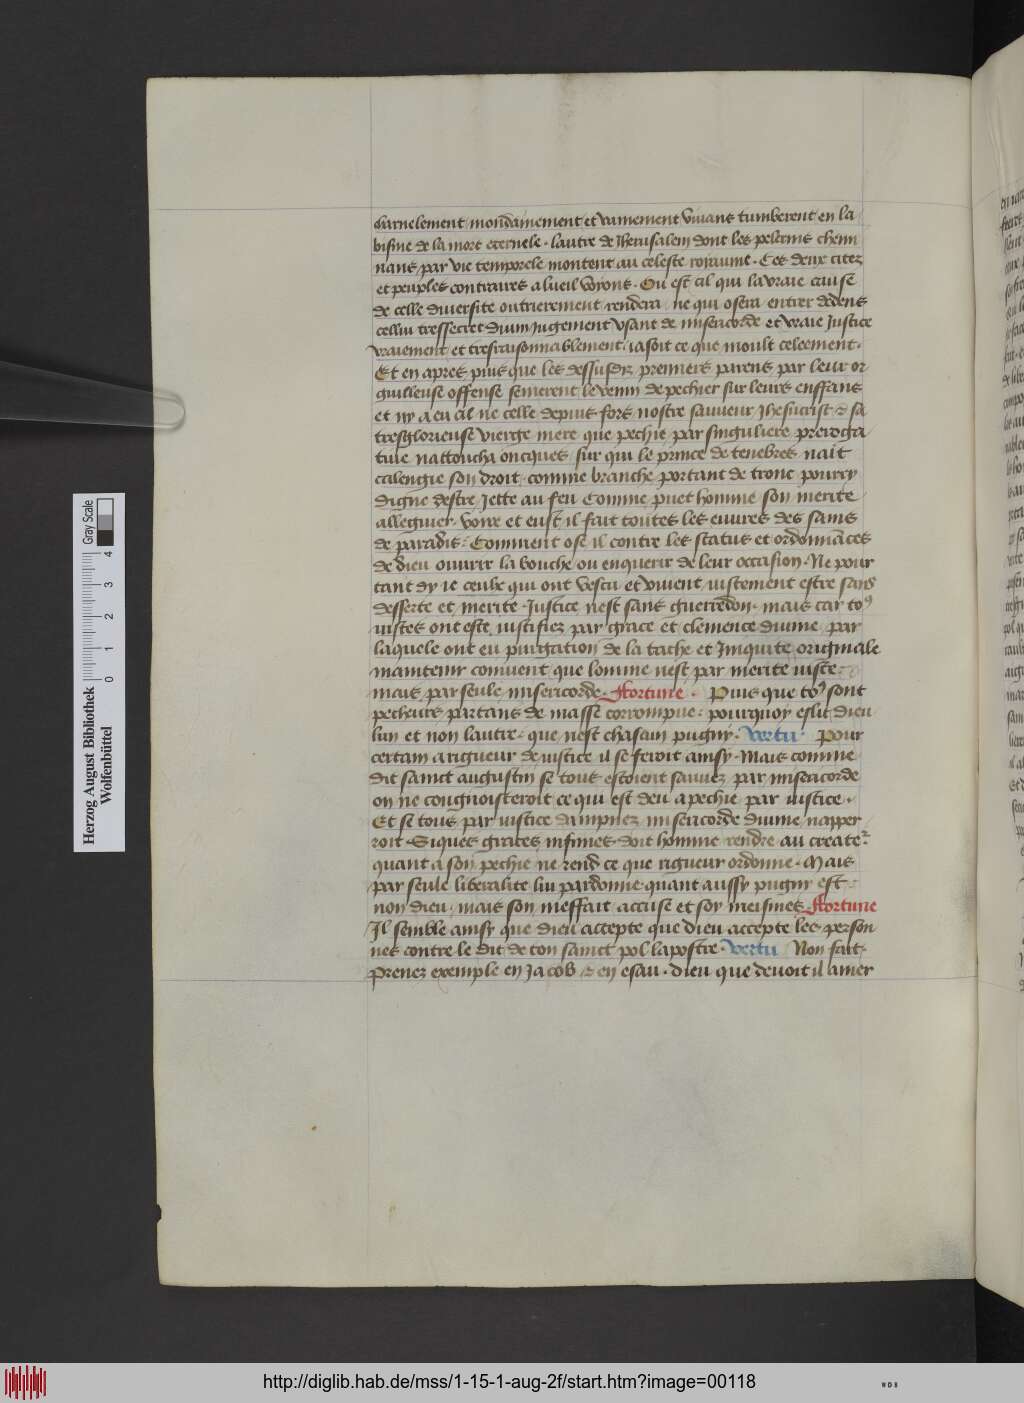 Charnelement mondainement et vainement vivans tumberent en la
bisme de la mort eternele · lautre de Jherusalem dont les pelerins chemi
nans par vie temporele montent au celeste royaume · Ces deux citez
et peuples contraires a lueil voyons · Ou est cil qui la vraie cause
de celle diversite oultrieement rendera ne qui osera entrer dedens
cellui tressecret divin Jugement usant de misericorde et vraie Justice
vraiement et tresraisonnablement · ia soit ce que moult celeement ·
Et en apres puis que les dessusdiz premiers parens par leur or
guilleuse offense semerent le venin de pechier sur leurs enffans
et ny a eu cil ne celle depuis fors nostre sauveur Jhesucrist & sa
tresglorieuse vierge mere que pechie par singuliere preroga
tive nattoucha oncques sur qui le prince de tenebres nait
calengie son droit comme branche portant de tronc pourry
digne destre Jette au feu Comme puet homme son merite
alleguier voire et eust il fait toutes les euvres des sains
de paradis · Comment ose il contre les status et ordonnāces
de dieu ouvrir la bouche ou enquerir de leur occasion · Ne pour
tant dy ie ceulx qui ont vescu et vivent iustement estre sans
desserte et merite · Justice nest sans guerredon · mais car toꝰ
iustes ont este iustifiez par grace et clemence divine par
laquele ont eu purgation de la tache et Iniquite originale
maintenir convient que lomme nest par merite iuste
mais par seule misericorde · Fortune · Puis que toꝰ sont
pecheurs partans de masse corrompue · pourquoy eslit dieu
lun et non lautre · que nest chascun pugny · Vertu Pour
certain a rigueur de iustice il se feroit ainsy · Mais comme
dit sainct augustin se tous estoient sauvez par misericorde
on ne cougnoisteroit ce qui est deu a pechie par iustice ·
Et si tous par iustice dampnez misericorde divine napper
roit · Siques graces infinies doit homme rendre au create
quant a son pechie ne rend ce que rigueur ordonne · Mais
par seule liberalite lui pardonne · quant aussy pugny est
non dieu · mais son meffait accuse et soy meismes · Fortune
Il semble ainsy que dieu accepte que dieu accepte les person
nes contre le dit de ton sainct pol lapostre · Vertu Non fait ·
Prenez exemple en Jacob & en esau · dieu que devoit il amer
Herzog August Bibliothek
Wolfenbüttel
0 1 2 3 4
Gray Scale
http://diglib.hab.de/mss/1-15-1-aug-2f/start.htm?image=00118
WDB